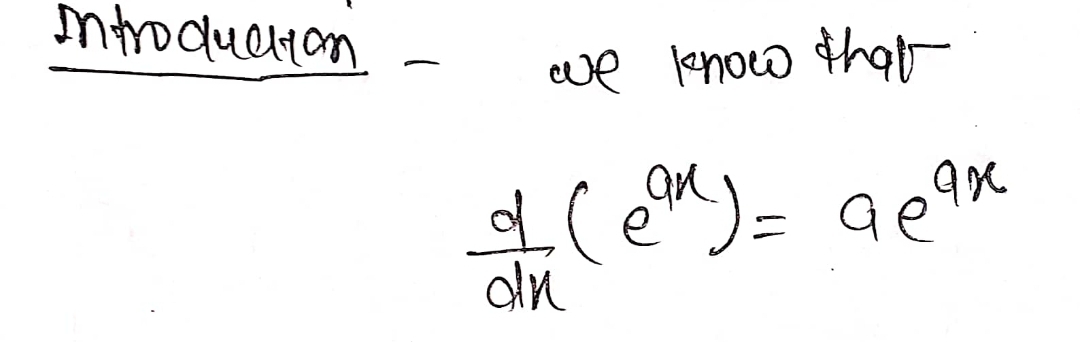 Introduction - we know that
d/dx (e^ax) = ae^ax